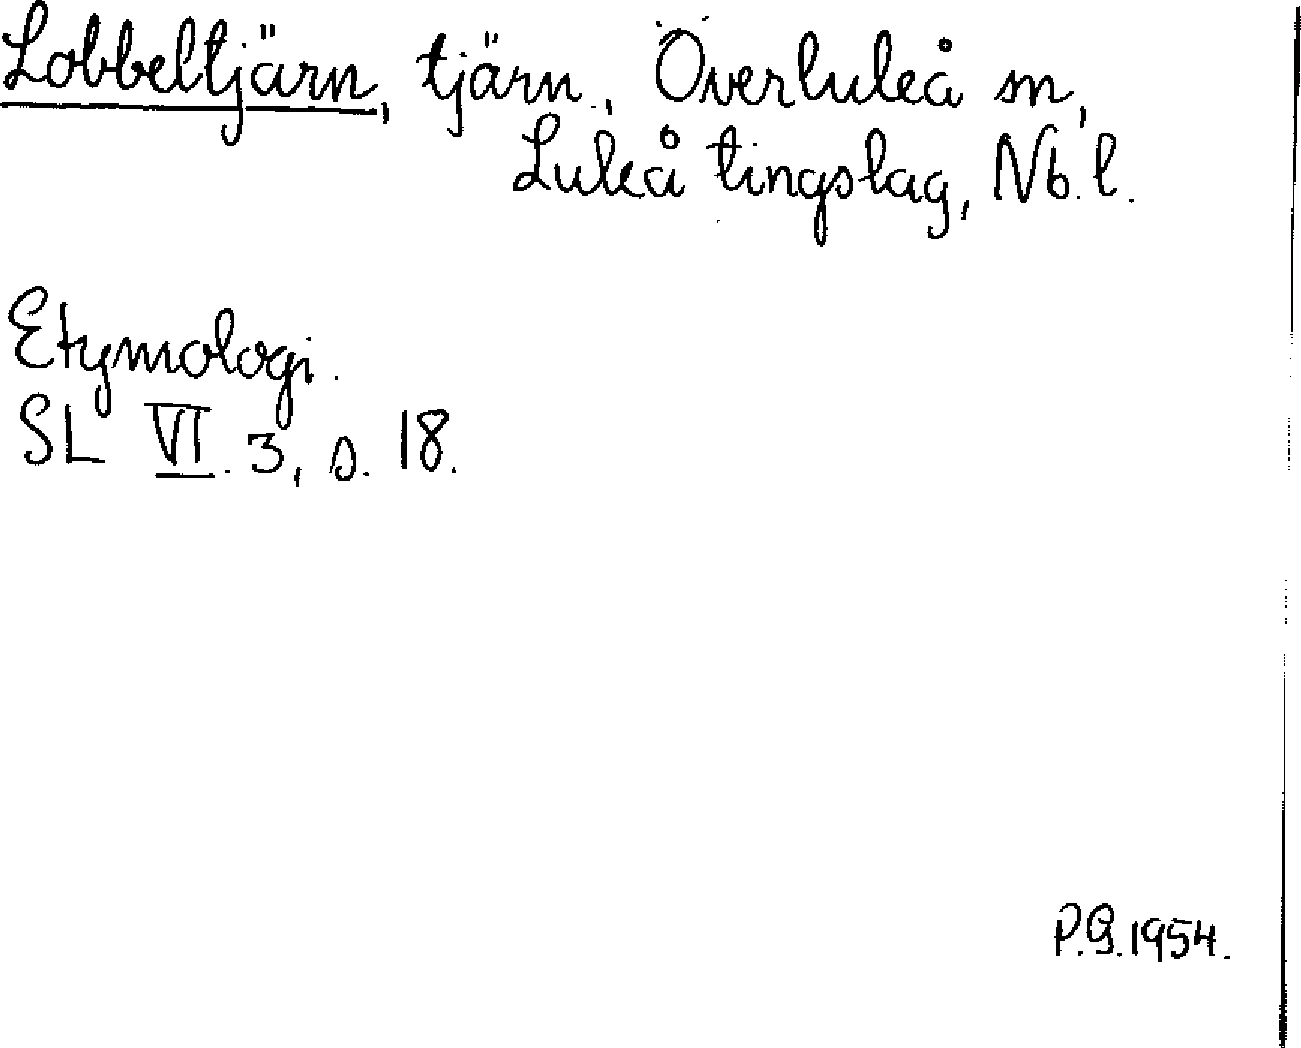 Lobbeltjärn, tjärn, Överluleå sn,
Luleå tingslag, Nb. l.
Etymologi.
SL VI. 3, s. 18.
P.G. 1954.